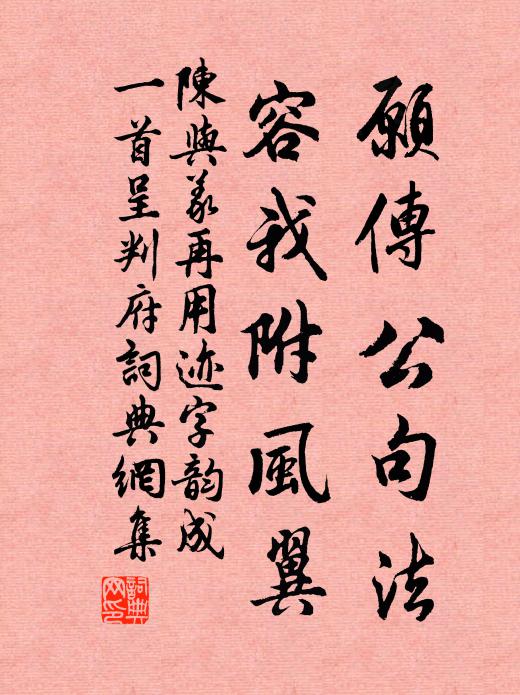 願傳公句法
容我附風翼
陳與義再用迹字韵成
一首呈判府詞典網集
詞典
网印